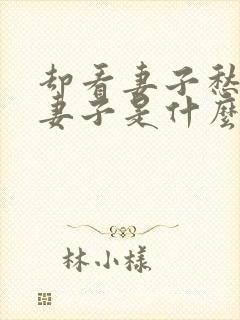 却看妻子愁
妻子是什麼
林小様